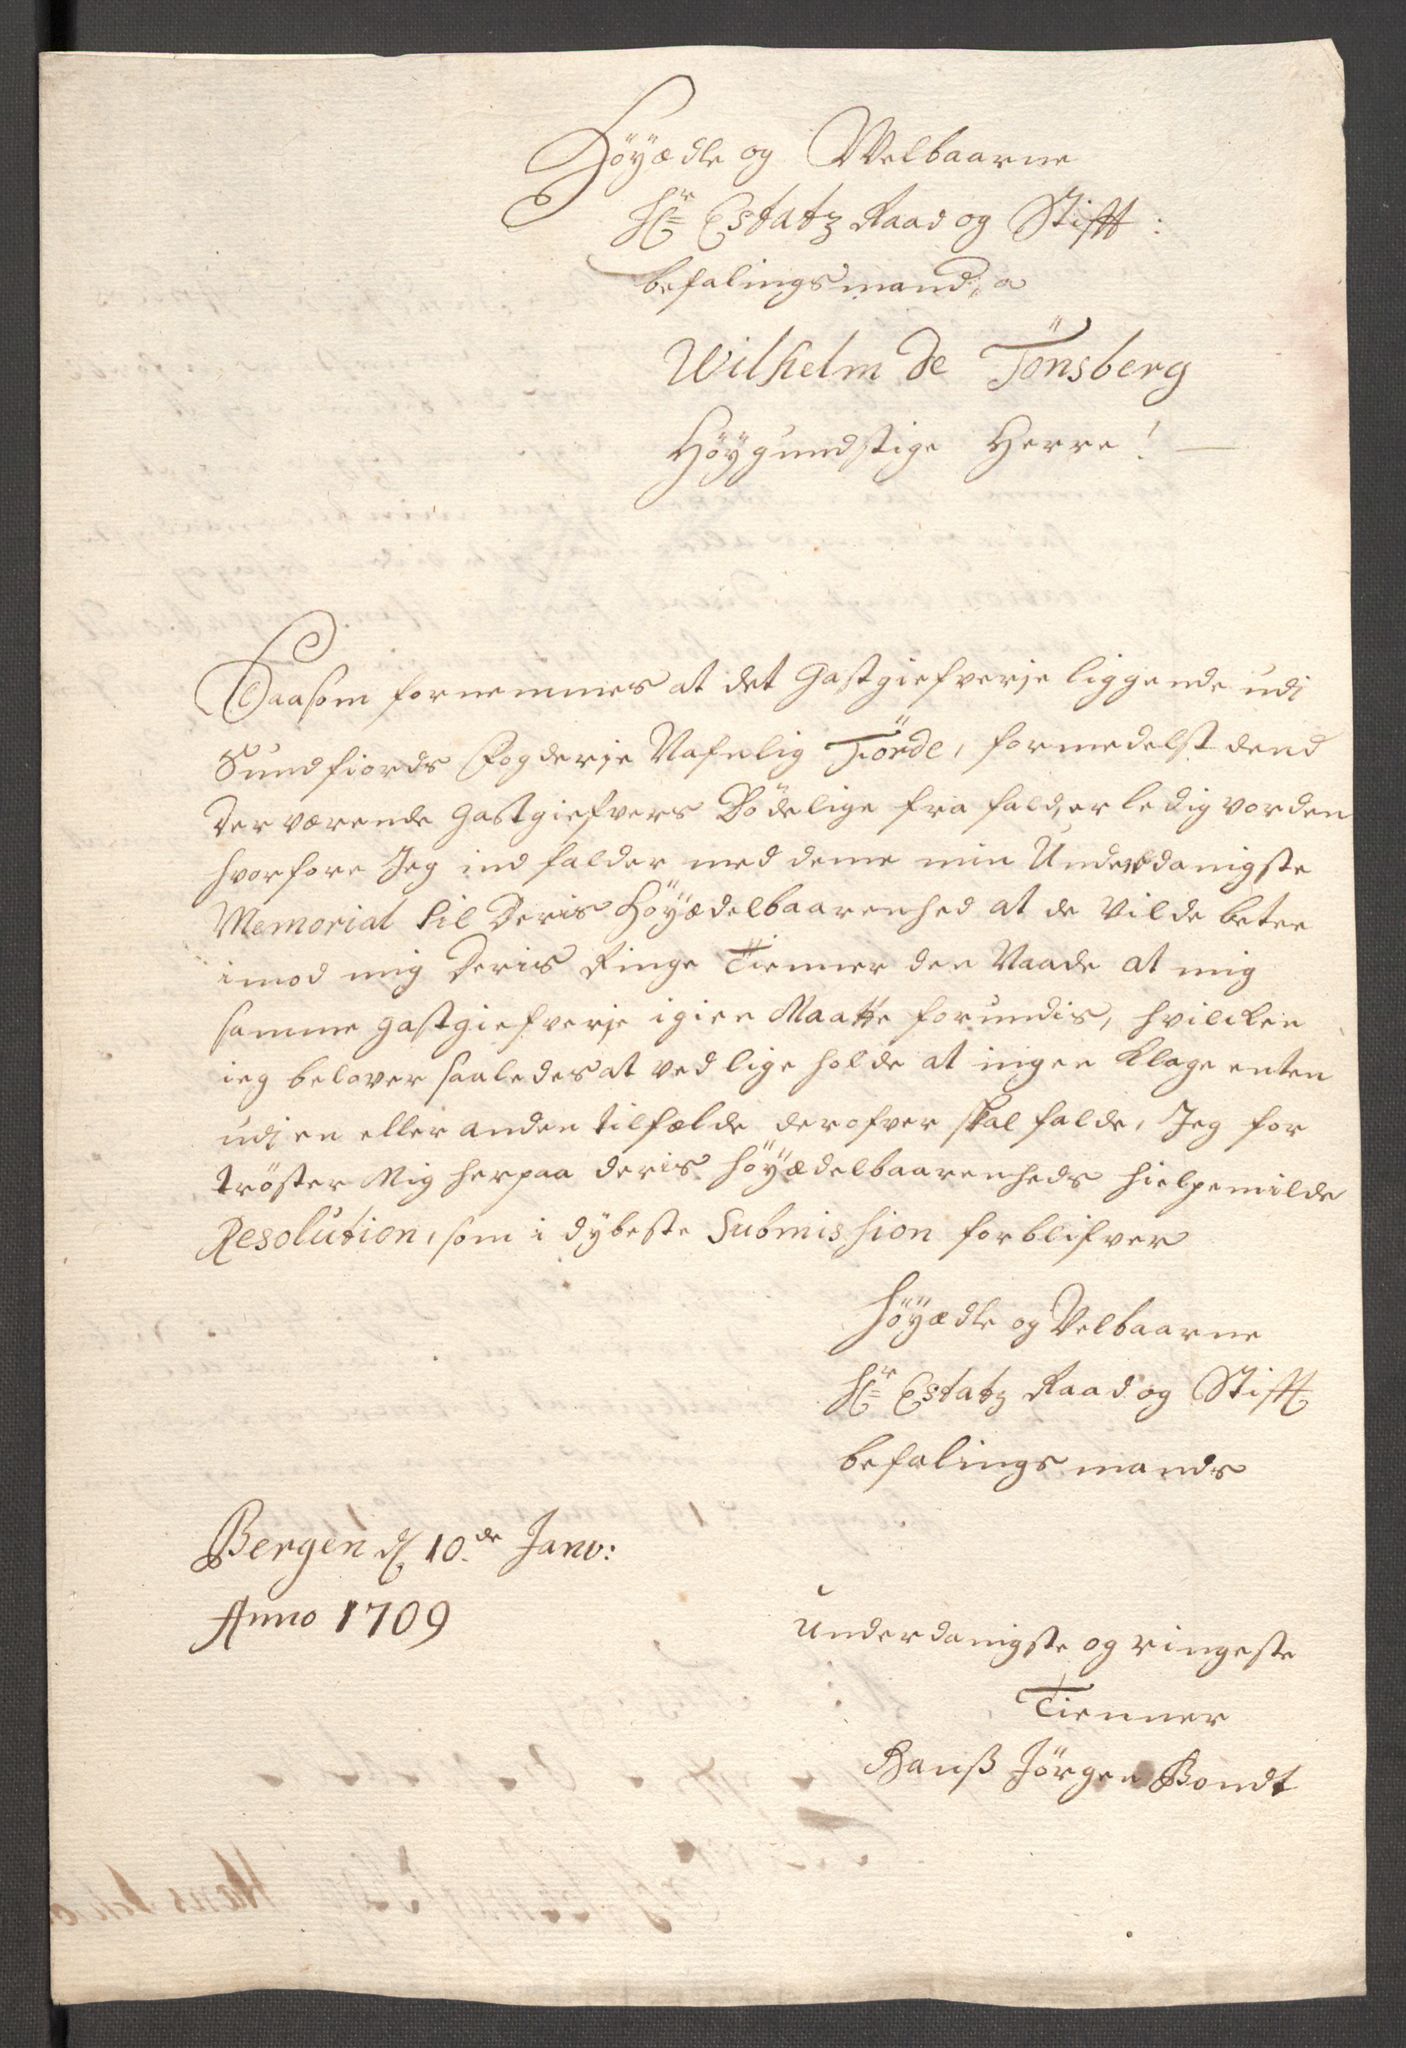 Höyædle og Welbaarne
Hr Estatz Raad og Stifft:
befalingsmand,
Wilhelm de Tönsberg
Höygundstige Herre!
Saasom fornemmes at det Gastgiefverje liggende udj
Sundfiords Fogderje Nafnlig Förde, formedelst dend
der værende Gastgiefvers Dödelige fra fald, er ledig vorden
hvorfore Jeg ind falder med dene min Underdanigste
Memorial til Deris Höyædelbaarenhed at de Vilde betee
imod mig Deris Ringe Tienner den Naade at mig
samme gastgiefverje igien Maatte forundis, hvilcken
ieg belover saaledes at ved lige holde at ingen Klage enten
udj en eller anden tilfælde derofver skal falde, Jeg for
tröster Mig herpaa deris Höyædelbaarenheds hielpemilde
Resolution, som i dybeste Submission forblifver
Höyædle og Velbaarne
Hr Estatz Raad og Stifft
befalings mands
Bergen d 10.de Janv:
Anno 1709
Underdanigste og ringeste
Tienner
Hanß Jörgen Bondt